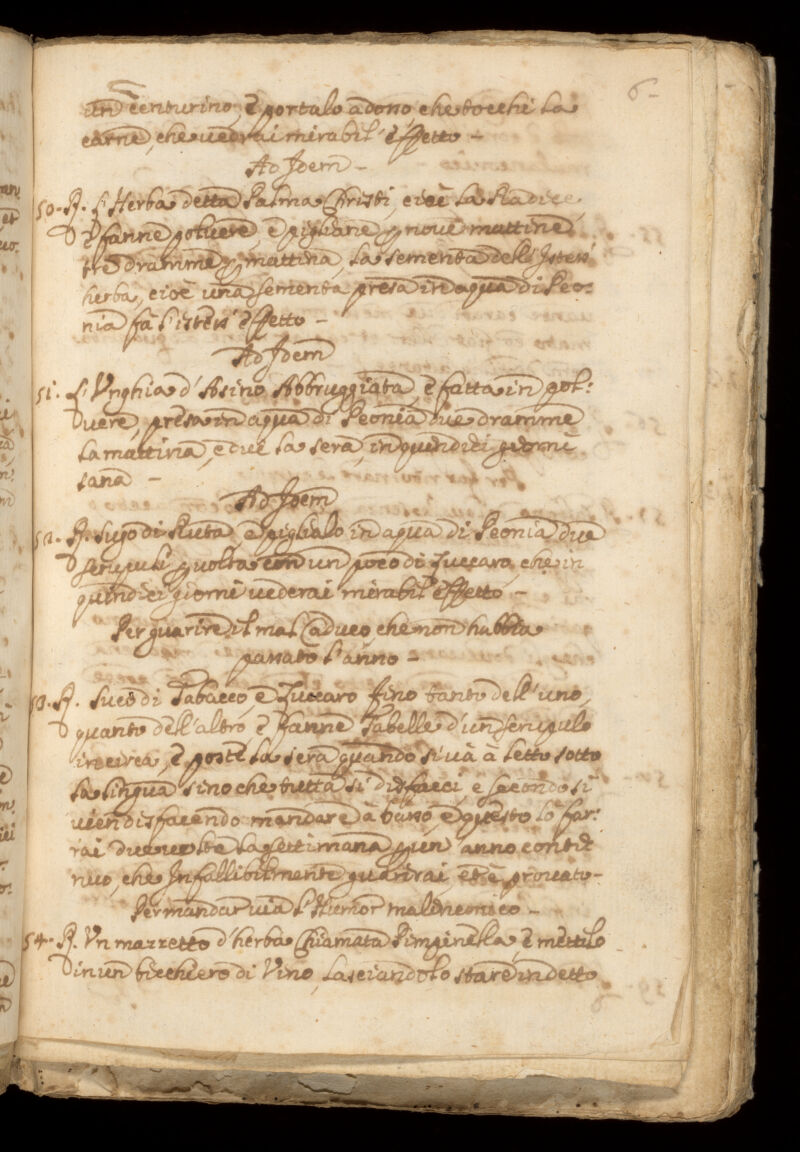 6-
un centurino, è portalo adono, che tocchi la
carne, che vedrai mirabil' effetto -
Ad Idem -
50- R. L'Herba detta Palma Christi, cioè la Radice,
è fanne polvere, è pigliane p nove mattine,
tre dramme p mattina, la sementa dell' Istess'
herba, cioè una sementa presa in aqua di Peo:
nia fà l'istess' effetto -
Ad Idem
51. L'Unghia d'Asino Abbruggiata, è fatta in pol:
vere, presa in aqua di Peonia due dramme
la mattina, e due la sera, in quindici giorni
sana -
Ad Idem
52. R. Sugo di Ruta, è piglialo in aqua di Peonia due
scrupuli p volta con un poco di Zuccaro, che in
quindici giorni vederai mirabil' effetto -
Per guarire il mal Caduco che non habbia
passato l'anno -
53. R. Suco di Tabacco, è Zuccaro fino tanto dell' uno,
quanto dell' altro è fanne Tabelle d'un scrupulo
in circa, è poste la sera quando si và à letto sotto
la lingua sino che tutta si disfacci, e secondo si
vien disfacendo mandare à basso, è questo lo far:
rai due volte la settimana p un' anno conti:
nuo, che Infallibilmente guarirai, et è provato -
Per mandar via l'Humor malinconico -
54- R. Un mazzetto d'herba Chiamata Pimpinella, è mettilo
in un bicchiero di Vino, lasciandolo stare in detto